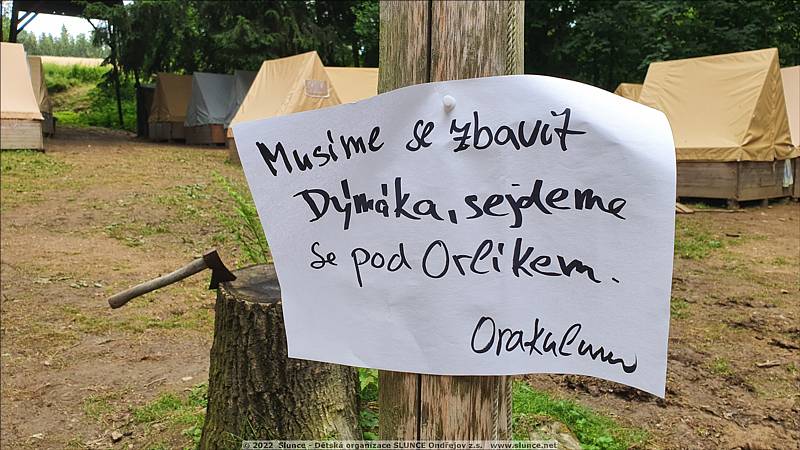 Musíme se zbavit
Dýmáka, sejdeme
se pod Orlíkem.
Orakulum
© 2022 Slunce - Dětská organizace SLUNCE Ondřejov z.s. www.slunce.net